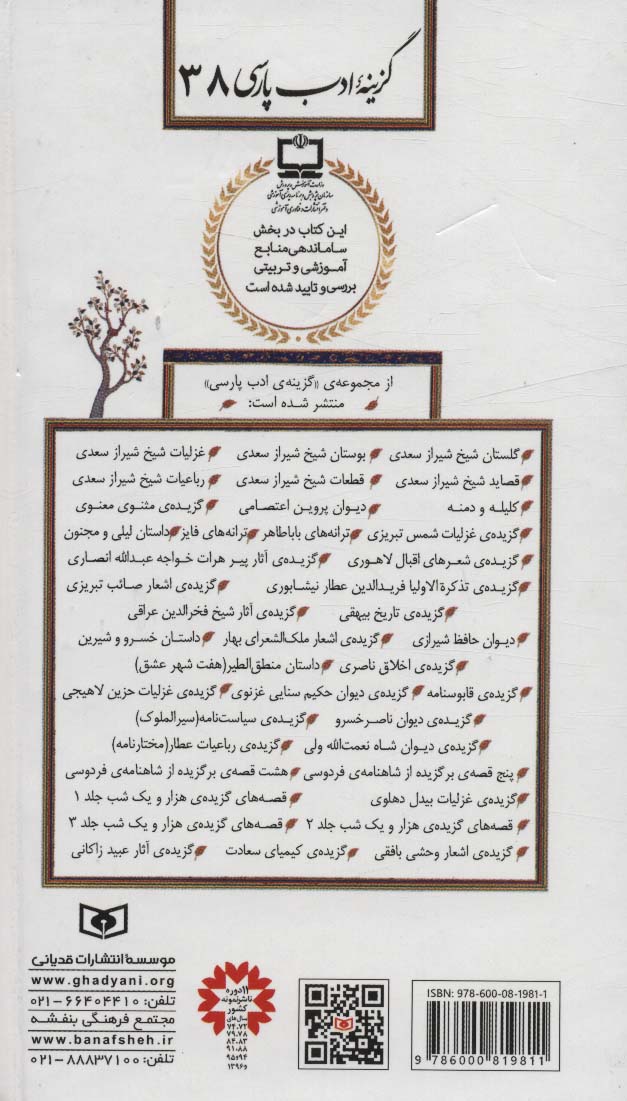 گزینهٔ ادب پارسی ۳۸
وزارت آموزش و پرورش
سازمان پژوهش و برنامه‌ریزی آموزشی
دفتر انتشارات و فناوری آموزشی
این کتاب در بخش
ساماندهی منابع
آموزشی و تربیتی
بررسی و تایید شده است
از مجموعه‌ی «گزینه‌ی ادب پارسی»
منتشر شده است:
گلستان شیخ شیراز سعدی بوستان شیخ شیراز سعدی غزلیات شیخ شیراز سعدی
قصاید شیخ شیراز سعدی قطعات شیخ شیراز سعدی رباعیات شیخ شیراز سعدی
کلیله و دمنه دیوان پروین اعتصامی گزیده‌ی مثنوی معنوی
گزیده‌ی غزلیات شمس تبریزی ترانه‌های باباطاهر ترانه‌های فایز داستان لیلی و مجنون
گزیده‌ی شعرهای اقبال لاهوری گزیده‌ی آثار پیر هرات خواجه عبدالله انصاری
گزیده‌ی تذکرة الاولیا فریدالدین عطار نیشابوری گزیده‌ی اشعار صائب تبریزی
گزیده‌ی تاریخ بیهقی گزیده‌ی آثار شیخ فخرالدین عراقی
دیوان حافظ شیرازی گزیده‌ی اشعار ملک‌الشعرای بهار داستان خسرو و شیرین
گزیده‌ی اخلاق ناصری داستان منطق‌الطیر(هفت شهر عشق)
گزیده‌ی قابوسنامه گزیده‌ی دیوان حکیم سنایی غزنوی گزیده‌ی غزلیات حزین لاهیجی
گزیده‌ی دیوان ناصرخسرو گزیده‌ی سیاست‌نامه(سیرالملوک)
گزیده‌ی دیوان شاه نعمت‌الله ولی گزیده‌ی رباعیات عطار(مختارنامه)
پنج قصه‌ی برگزیده از شاهنامه‌ی فردوسی هشت قصه‌ی برگزیده از شاهنامه‌ی فردوسی
گزیده‌ی غزلیات بیدل دهلوی قصه‌های گزیده‌ی هزار و یک شب جلد ۱
قصه‌های گزیده‌ی هزار و یک شب جلد ۲ قصه‌های گزیده‌ی هزار و یک شب جلد ۳
گزیده‌ی اشعار وحشی بافقی گزیده‌ی کیمیای سعادت گزیده‌ی آثار عبید زاکانی
موسسهٔ انتشارات قدیانی
www.ghadyani.org
تلفن: ۶۶۴۰۴۴۱۰-۰۲۱
مجتمع فرهنگی بنفشه
www.banafsheh.ir
تلفن: ۸۸۸۳۷۱۰۰-۰۲۱
۱۱ دوره
ناشر نمونه
کشور
سال‌های
۷۴،۷۲
۷۹،۷۸
۸۴،۸۳
۹۱،۸۸
۹۵،۹۴
و ۱۳۹۶
ISBN: 978-600-08-1981-1
9 786000 819811